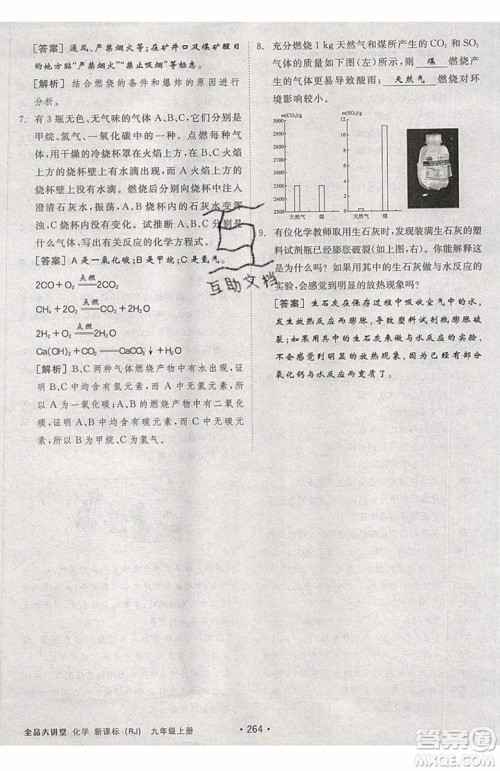 [答案] 通风、严禁烟火等;在矿井口及煤矿醒目
的地方贴“严禁烟火”“禁止吸烟”等标志。
[解析] 结合燃烧的条件和爆炸的原因进行分
析。
7. 有3瓶无色、无气味的气体A、B、C,它们分别是
甲烷、氢气、一氧化碳中的一种。点燃每种气
体,用干燥的冷烧杯罩在火焰上方,B、C火焰上
方的烧杯上有水滴出现,而罩在A火焰上方的
烧杯上没有水滴;向罩过A、B火焰的烧杯中倒入
澄清石灰水,振荡,A、B烧杯内的石灰水变浑
浊,C烧杯内没有变化。试推断A、B、C各是什
么气体,写出发生反应的化学方程式。
[答案] A是一氧化碳,B是甲烷,C是氢气。
2CO+O₂ 点燃 2CO₂
CH₄+2O₂ 点燃 CO₂+2H₂O
2H₂+O₂ 点燃 2H₂O
Ca(OH)₂+CO₂══CaCO₃↓+H₂O
[解析] B、C两种气体燃烧产物中有水出现,证
明B、C中均含有氢元素,而A中无氢元素;
A、B中均含有碳元素,因A、B的燃烧产物中有二氧化
碳。所以B为甲烷,A为一氧化碳,C为氢气。
8. 充分燃烧1 kg天然气和煤所产生的CO₂和SO₂
气体的质量如下图(左),所以 煤 燃烧对环
境影响较大, 天然气 燃烧对环
境影响较小。
m(CO₂)/g
3000
2900
2800
2700
2600
2500
2400
2300
天然气 煤
m(SO₂)/g
12
10
8
6
4
2
0
天然气 煤
9. 有位化学教师取用生石灰时,发现装满生石灰的塑
料试剂瓶已膨胀破裂(如上图,右)。你能解释这
是为什么吗?如果用剩下的生石灰做与水反应的
实验,会感觉到明显的放热现象吗?
[答案] 生石灰在保存过程中吸收空气中的水,
发生放热反应而膨胀,导致塑料试剂瓶破裂。不
会感觉到明显的放热现象,因为生石灰大部分已经与
氧化钙与水反应而变质。
互助文档
全品大讲堂 化学 新课标(RJ) 九年级上册
· 264 ·